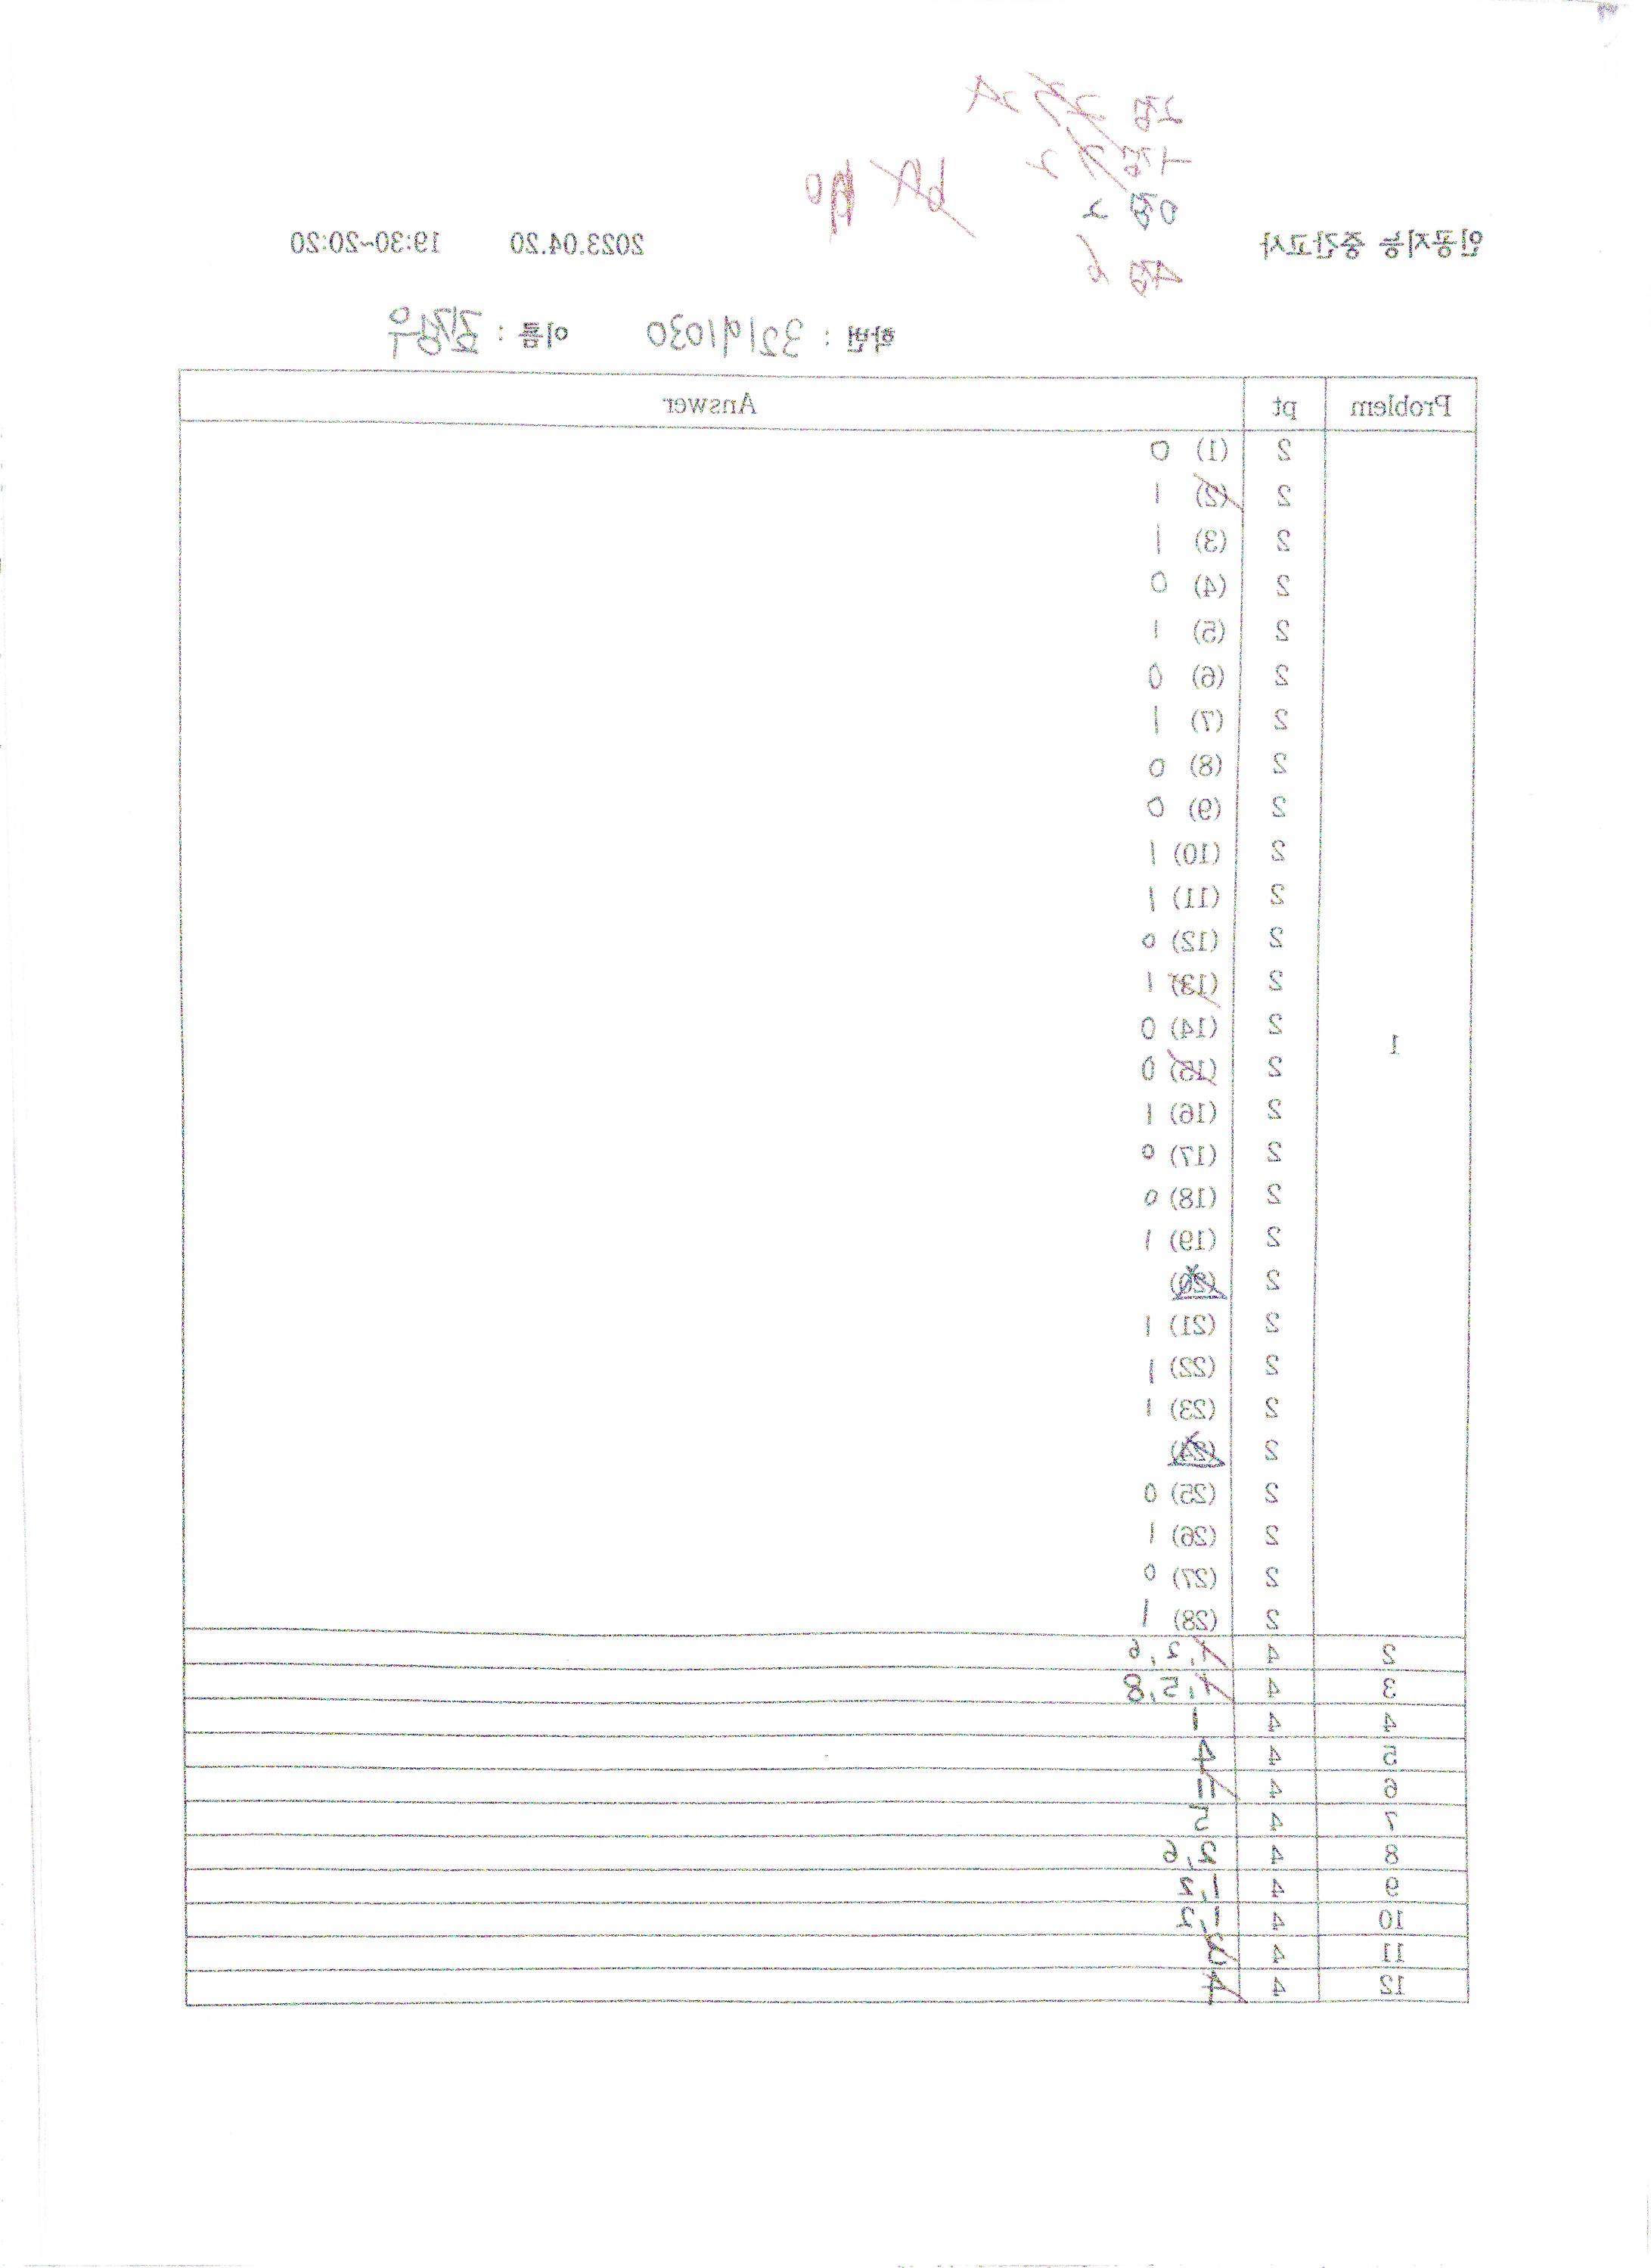 인공지능 중간고사 2023.04.20 19:30~20:20
2점
1점
0점 2
4점
학번 : 32191030 이름 :
Problem pt Answer
1
2 (1) 0
2 (2) 1
2 (3) 1
2 (4) 0
2 (5) 1
2 (6) 0
2 (7) 1
2 (8) 0
2 (9) 0
2 (10) 1
2 (11) 1
2 (12) 0
2 (13) 1
2 (14) 0
2 (15) 0
2 (16) 1
2 (17) 0
2 (18) 0
2 (19) 1
2 (20)
2 (21) 1
2 (22) 1
2 (23) 1
2 (24)
2 (25) 0
2 (26) 1
2 (27) 0
2 (28) 1
2 4 1,2,6
3 4 1,5,8
4 4 1
5 4 4
6 4 11
7 4 5
8 4 2,6
9 4 1,2
10 4 1,2
11 4 3
12 4 4